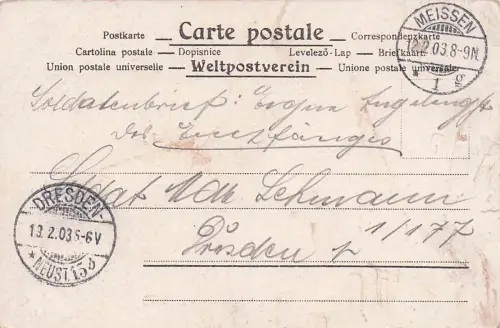 Postkarte — Carte postale — Correspondenzkarte
Cartolina postale — Dopisnice Levelező-Lap — Briefkaart
Union postale universelle — Weltpostverein — Unione postale universale
MEISSEN
12.2.03.8-9N
* 1 g
Soldatenbrief: Eigene Angelegenh.
des Empfängers
Soldat Max Lehmann
1/177
Dresden
DRESDEN-
13.2.03.5-6V
*NEUST.15d